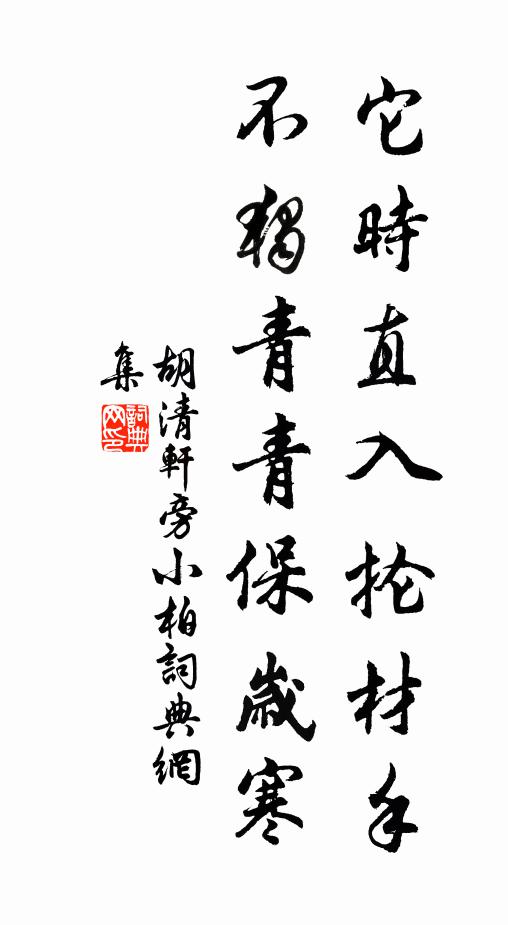 它時直入抡材手
不獨青青保歲寒
胡清軒旁小柏詞典網
集
詞典
网印